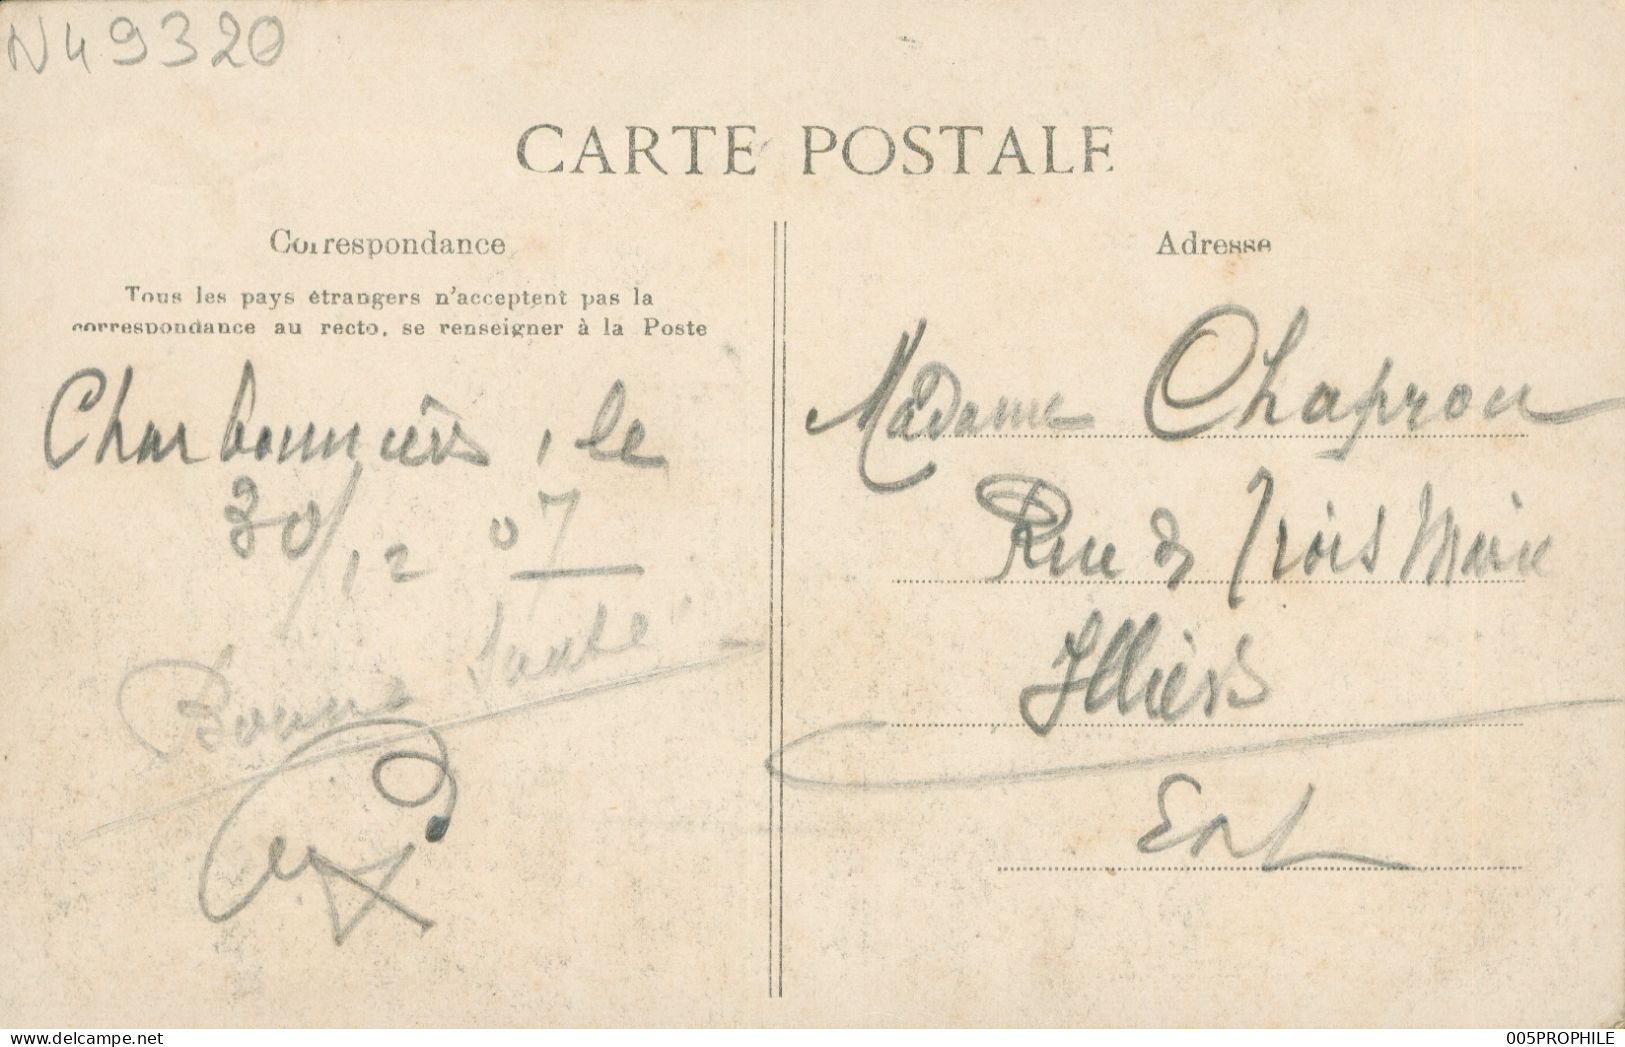 N49320
CARTE POSTALE
Correspondance
Tous les pays étrangers n'acceptent pas la
correspondance au recto, se renseigner à la Poste
Charbonnières, le
30/12 07
Bonne Santé
Adresse
Madame Chapron
Rue des Trois Marie
Illiers
E et L
005PROPHILE